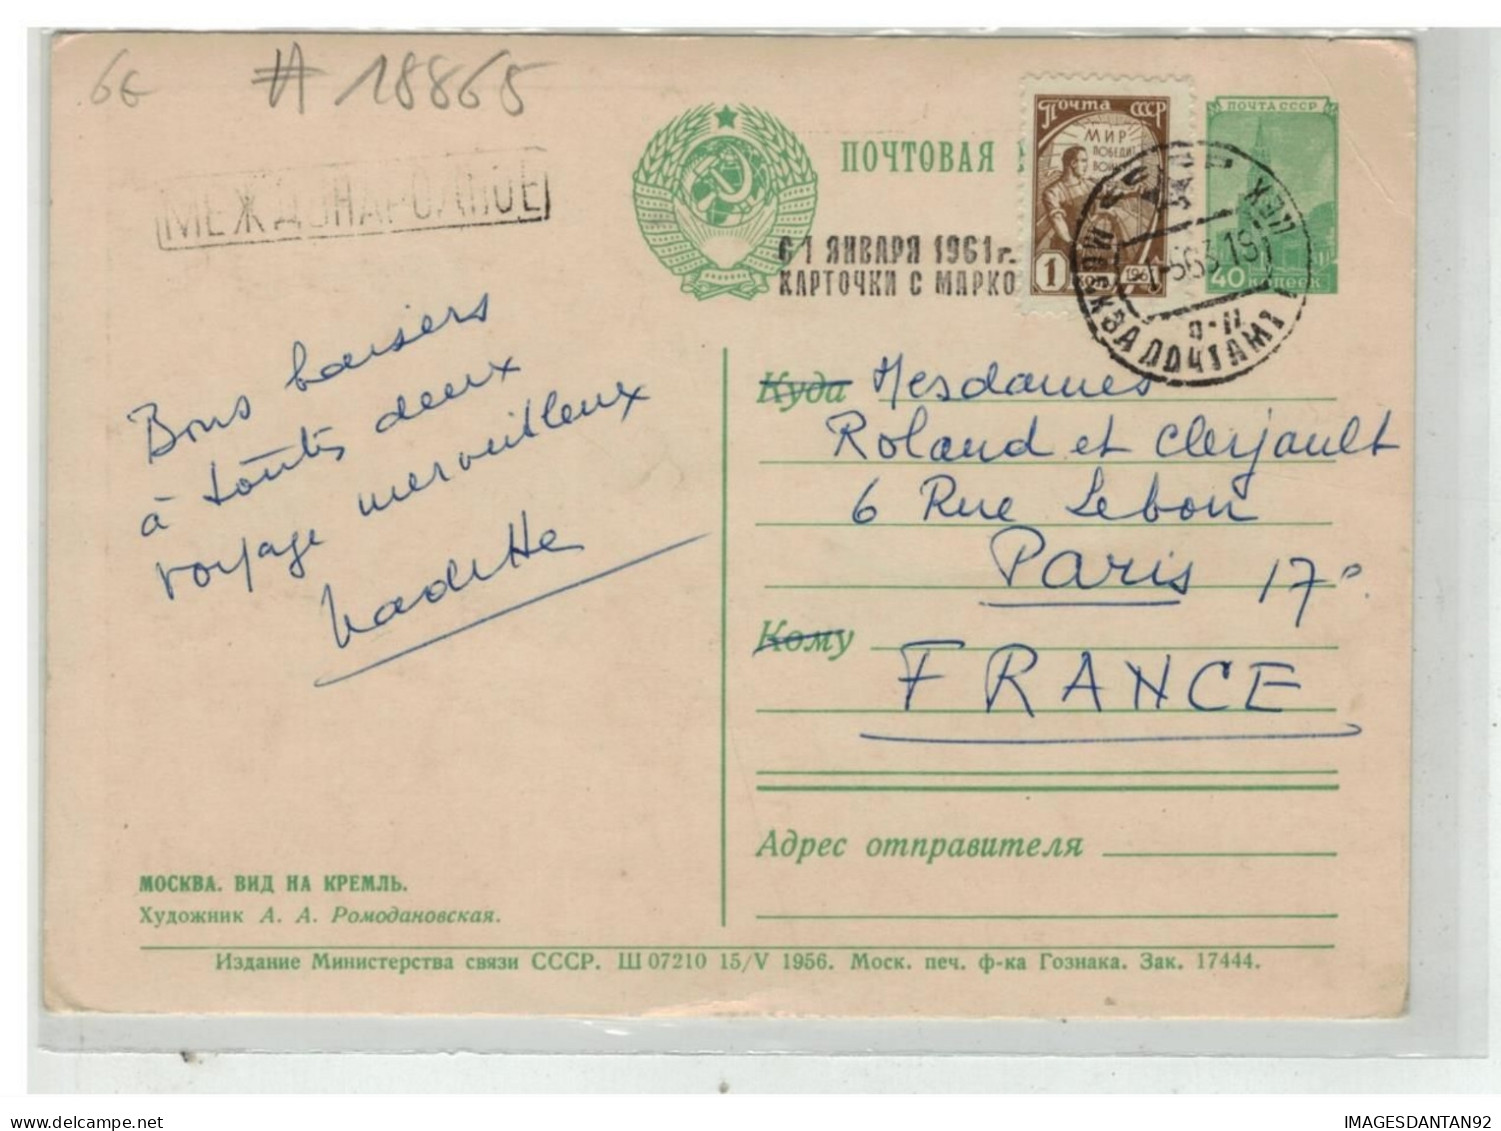 6€ # 18865
МЕЖДУНАРОДНОЕ
ПОЧТОВАЯ
Почта СССР
МИР
ПОБЕДИТ
ВОЙНУ
1 коп 1961
ПОЧТА СССР
40 КОПЕЕК
С 1 ЯНВАРЯ 1961 г.
КАРТОЧКИ С МАРКО
МОСКВА ПОЧТАМТ
Bons baisers
à toutes deux
voyage merveilleux
Куда Mesdames
Roland et Clerjault
6 Rue Lebon
Paris 17e
Кому
FRANCE
Адрес отправителя
МОСКВА. ВИД НА КРЕМЛЬ.
Художник А. А. Ромодановская.
Издание Министерства связи СССР. Ш 07210 15/V 1956. Моск. печ. ф-ка Гознака. Зак. 17444.
www.delcampe.net
IMAGESDANTAN92